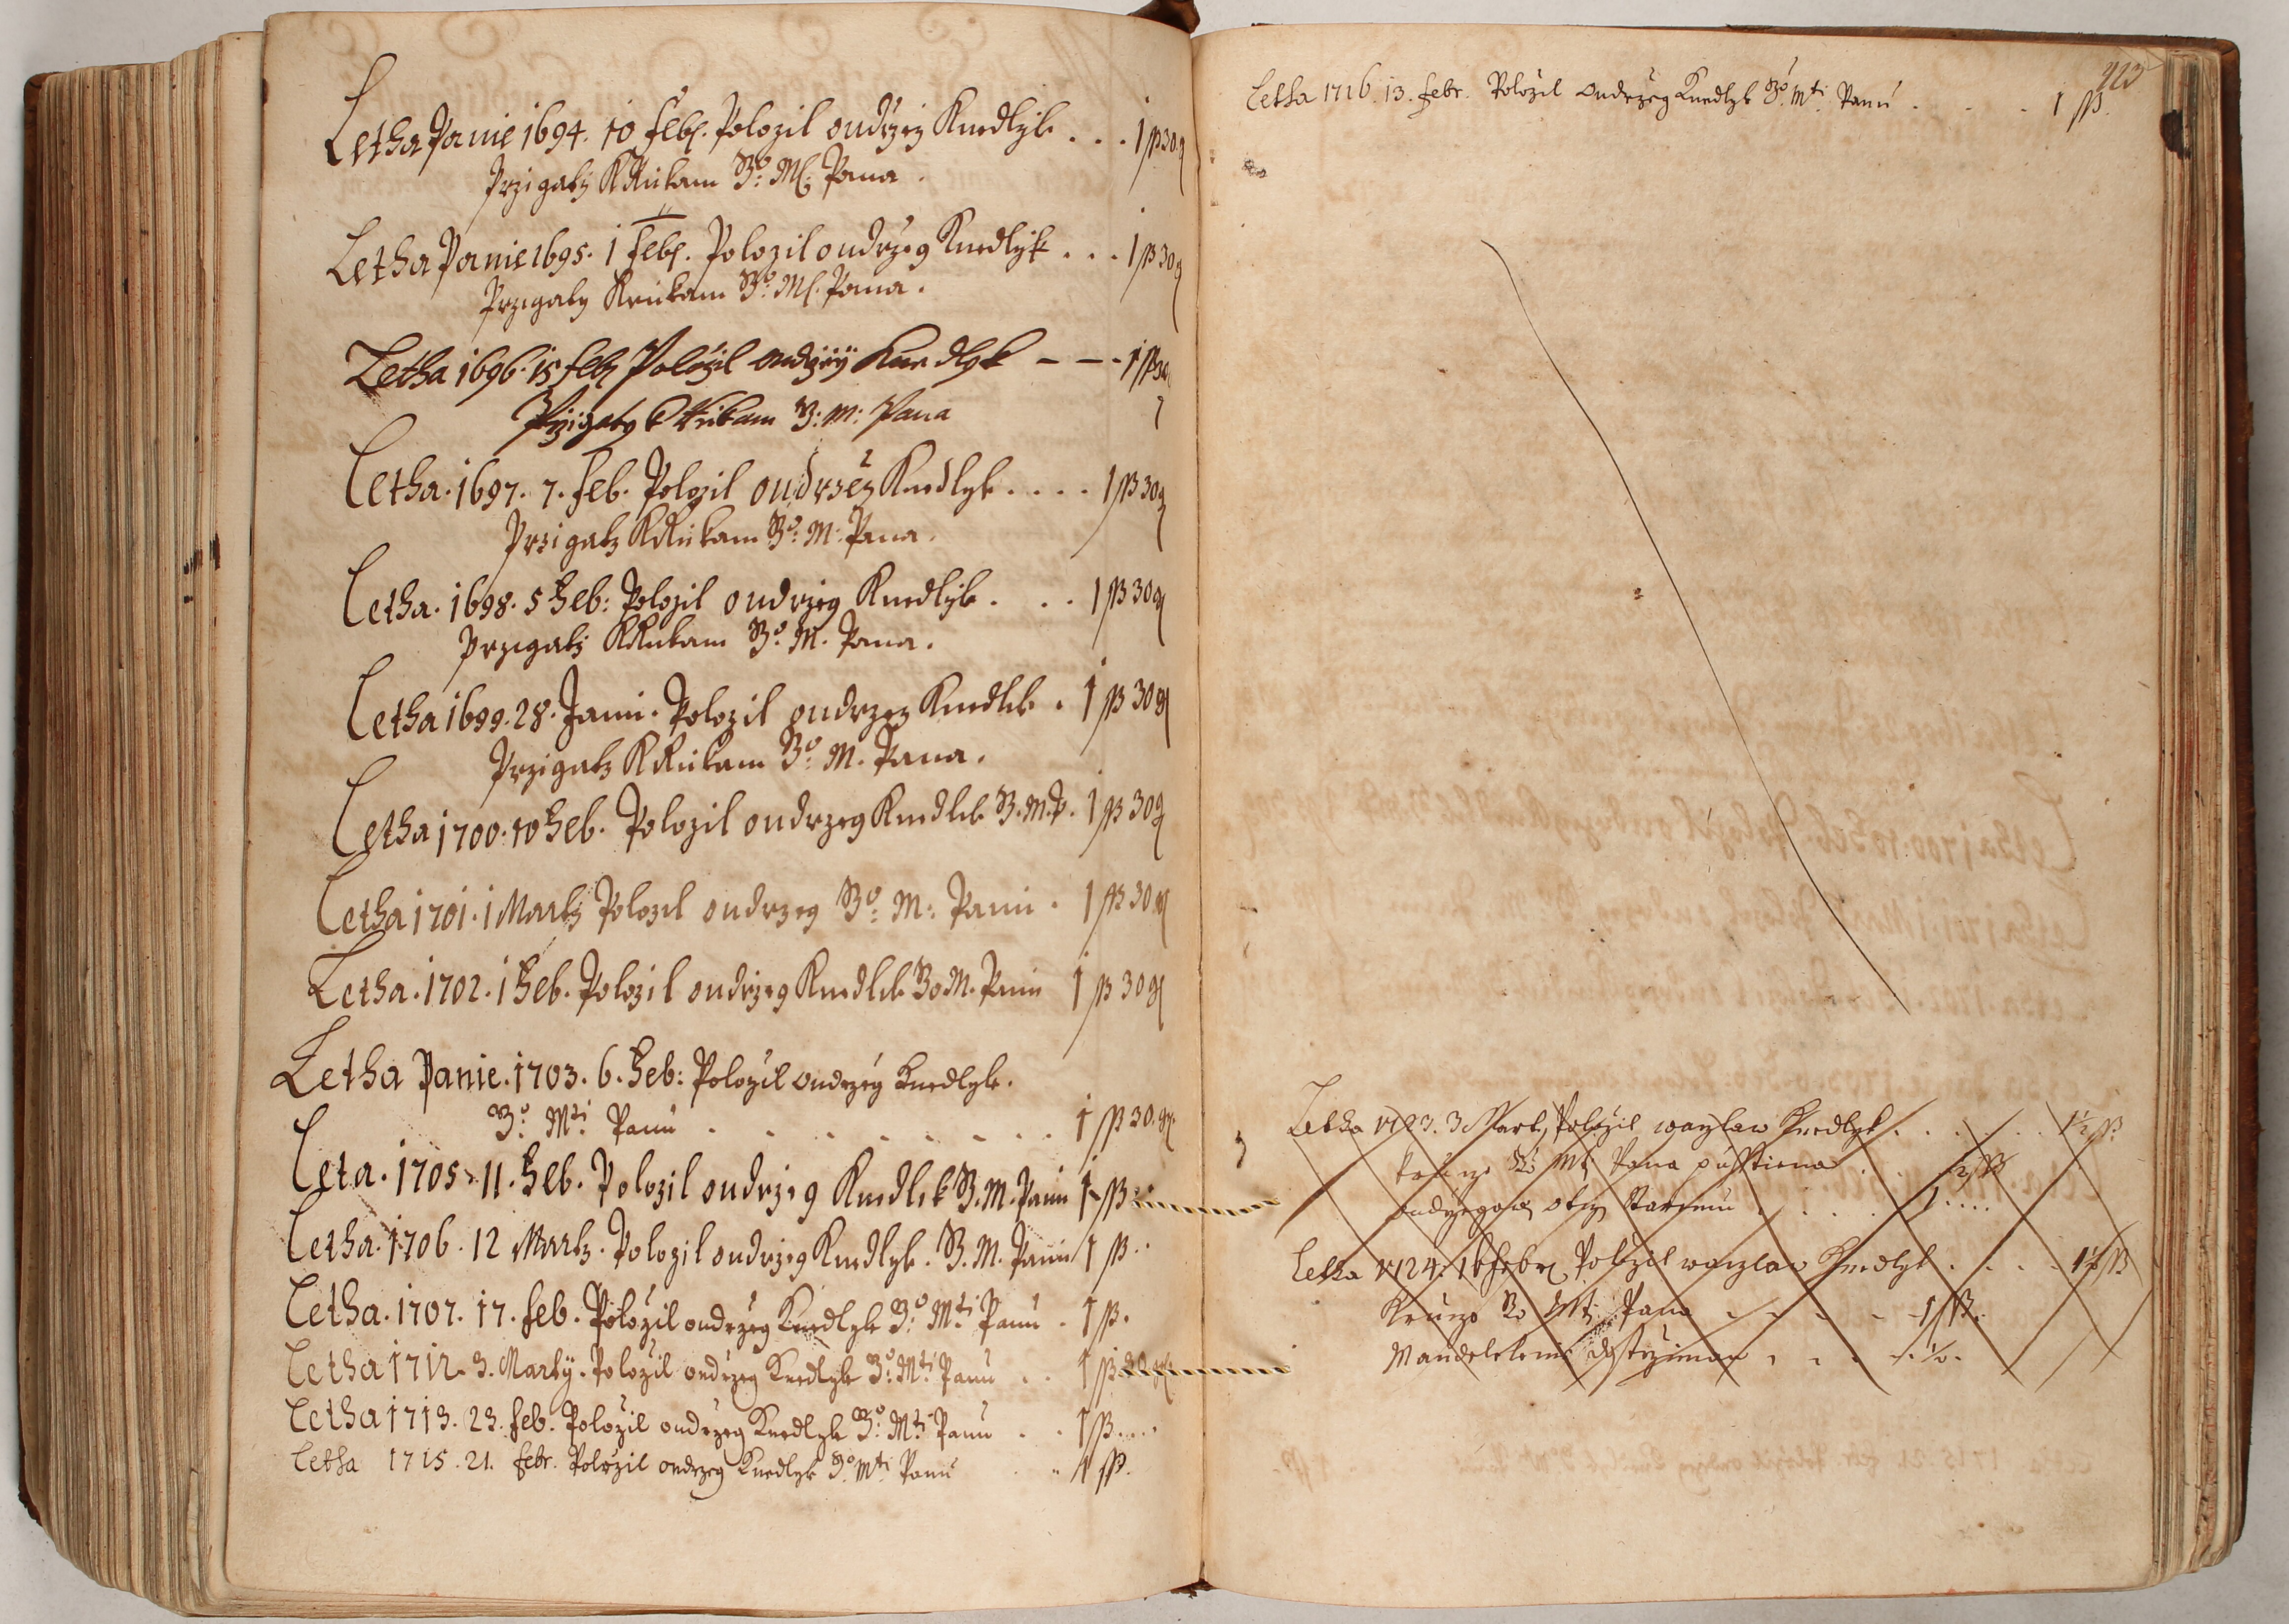 Letha Panie 1694. 10 Feb. Polozil ondrzej Knedlyk . . . 1 ß 30 g
Przigaty K Rukam Jo: Ml: Pana.
Letha Panie 1695. 1 Feb. Polozil ondrzeg Knedlyk . . . 1 ß 30 g
Przigaty K Rukam Jo: Ml. Pana.
Letha 1696. 15 feb Polozil ondrzey Knedlyk - - - 1 ß 30
Przigaty k Rukam J: M: Pana
Letha. 1697. 7. Feb. Polozil ondrzeg Knedlyk . . . . 1 ß 30 g
Przigaty K Rukam Jo: M: Pana.
Letha. 1698. 5 Feb: Polozil ondrzeg Knedlyk . . . 1 ß 30 g
Przigaty K Rukam Jo: M. Pana.
Letha 1699. 28. Janu. Polozil ondrzeg Knedlik . 1 ß 30 g
Przigaty K Rukam Jo: M. Pana.
Letha 1700. 10 Feb. Polozil ondrzeg Knedlik J. M. P. 1 ß 30 g
Letha 1701. 1 Marty Polozil ondrzeg Jo: M: Panu . 1 ß 30 g
Letha. 1702. 1 Feb. Polozil ondrzeg Knedlik Jo M. Panu 1 ß 30 g
Letha Panie. 1703. 6. Feb: Polozil ondrzeg Knedlyk.
Jo: Mti Panu . . . . . . . . 1 ß 30. g
Leta. 1705. 11. Feb. Polozil ondrzeg Knedlik J. M. Panu 1 ß
Letha. 1706. 12 Marty. Polozil ondrzeg Knedlyk. J. M. Panu 1 ß . .
Letha. 1707. 17. feb. Polozil ondrzeg Knedlyk Jo: Mti Panu . 1 ß.
Letha 1712. 3. Marty. Polozil ondrzeg Knedlyk Jo: Mti Panu . . 1 ß
Letha 1713. 23. feb. Polozil ondrzeg Knedlyk Jo: Mti Panu . . 1 ß . . . .
Letha 1715. 21. febr. Polozil ondrzeg Knedlyk Jo: Mti Panu . . 1 ß.
Letha 1716. 13. febr. Polozil ondrzeg Knedlyk Jo: Mti Panu . . . . 1 ß.
Letha 1723. 3 Marty Polozil waczlaw Knedlyk . . . . . . 1½ ß
Jo Mti Pana . . ½ ß
. . . . 1 . . . .
Letha 1724. 16 febr Polozil waczlaw Knedlyk . . . . 1½ ß
K Jo Mti Pana . . . . 1 ß.
. . . . ½.